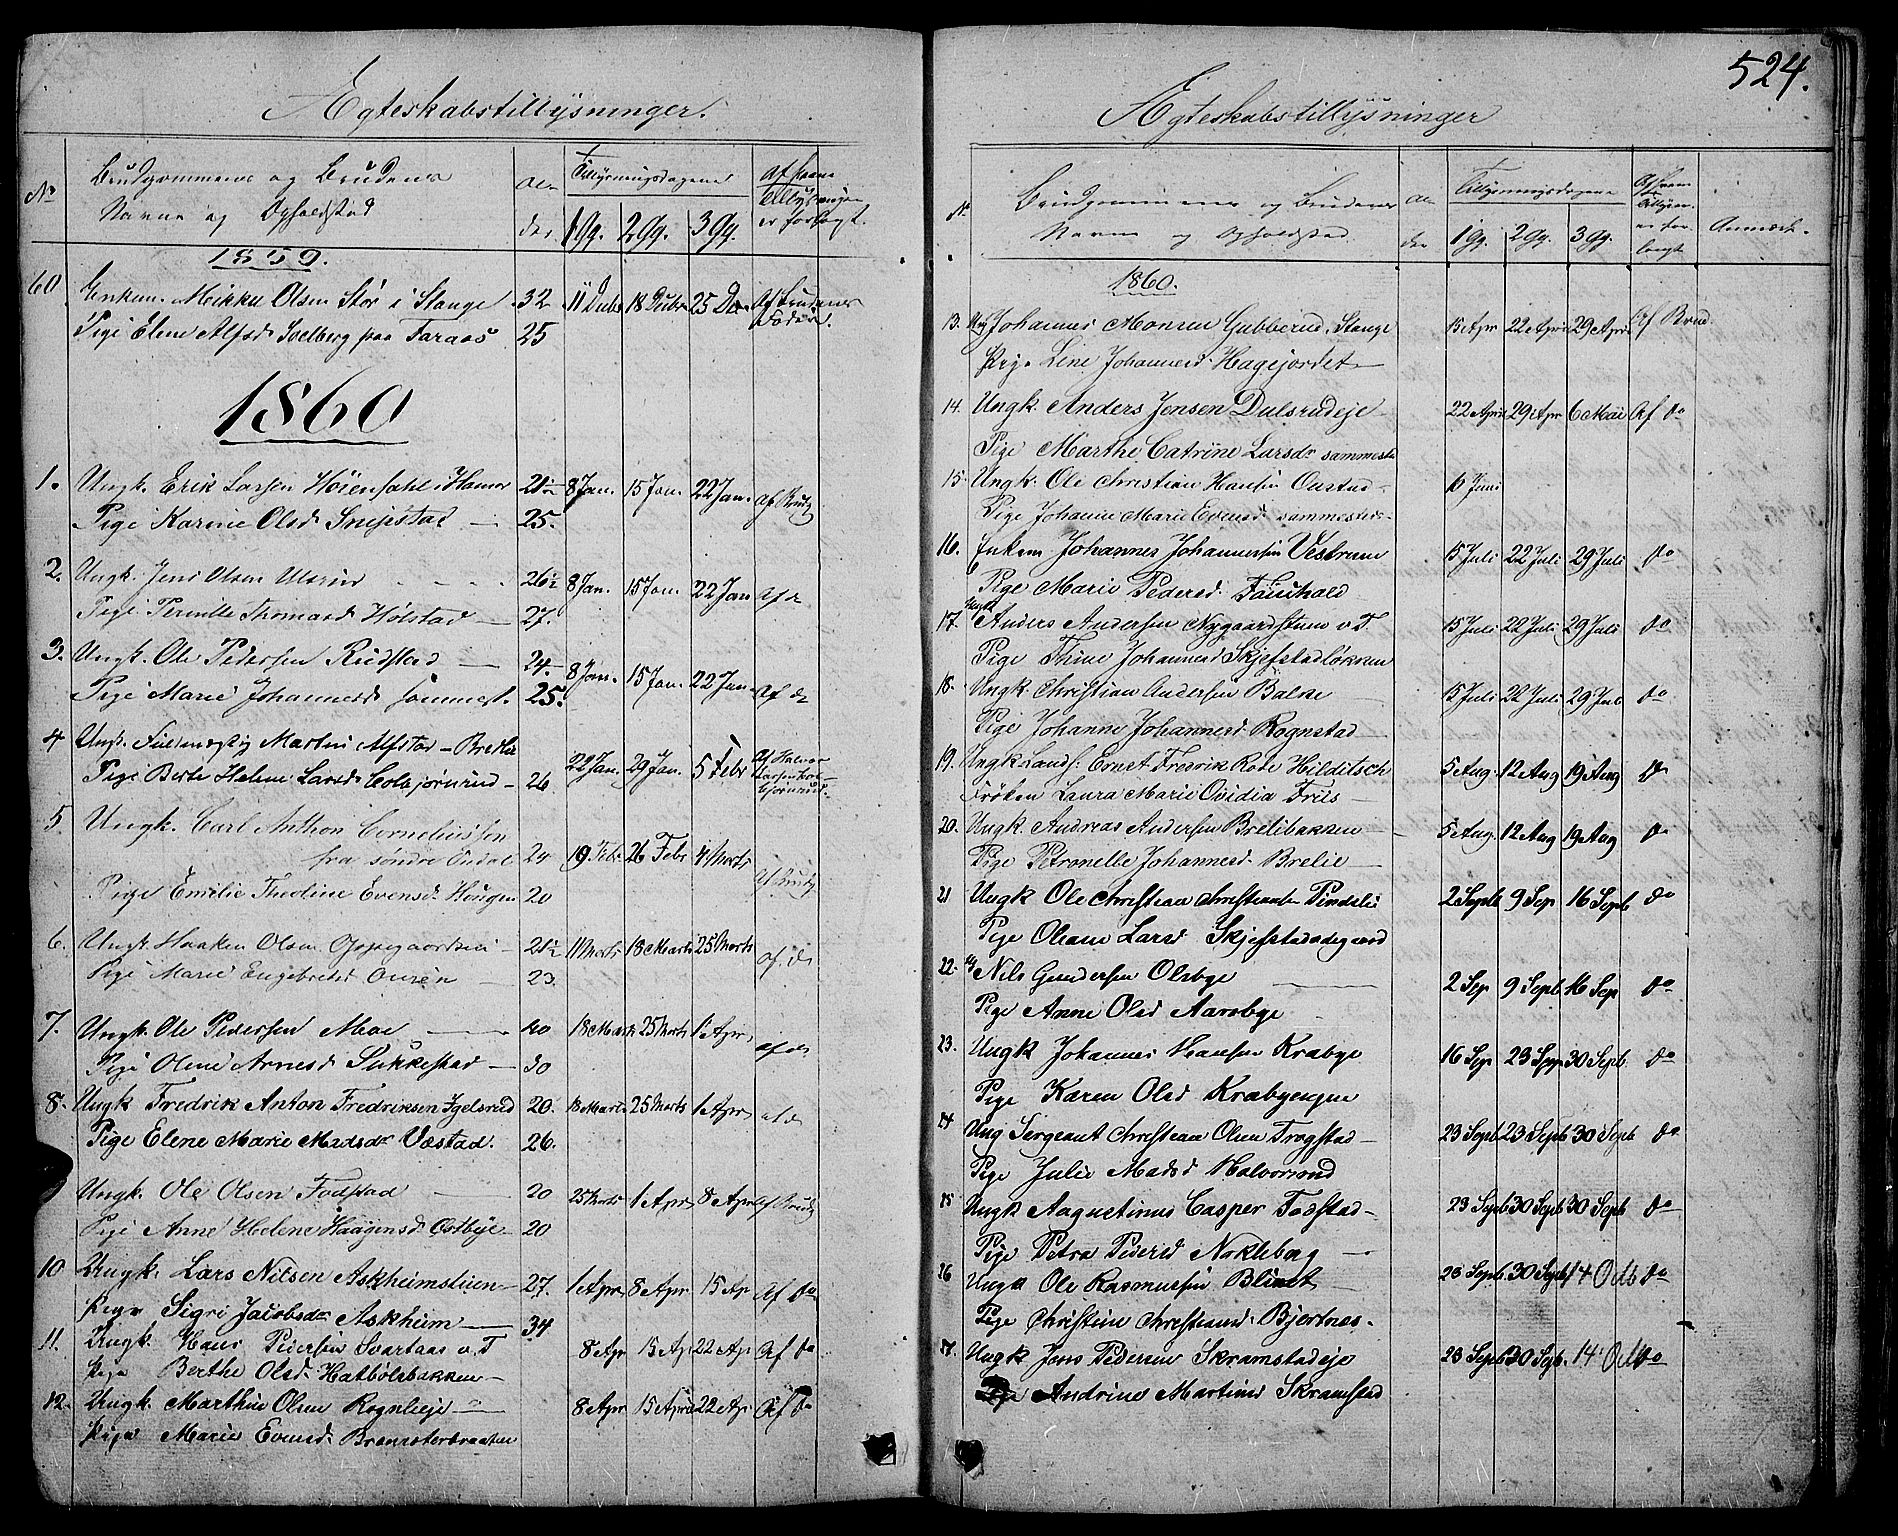 Ægteskabstillysninger.
No Brudgommenes og Brudens Navne og Opholdstad Al- der Tillysningsdagene 1 Gg. 2 Gg. 3 Gg. Af hvem Tillysningen er forlagt.
1859.
60 Enkem. Mikkel Olsen Stor i Stange 32 11 Decbr 18 Decbr 25 De Af Brudens Fader.
Pige Elene Alfsd Soelberg paa Faraas 25
1860
1. Ungk. Erik Larsen Høiensahl i Hamar 21½ 8 Jan. 15 Jan. 22 Jan. af Brudg
Pige Karine Olsd Snejstad 25.
2. Ungk. Jens Olsen Ulsrud 26½ 8 Jan. 15 Jan. 22 Jan Af d
Pige Pernille Thomasd Holstad 27.
3. Ungk. Ole Pedersen Rudstad 24. 8 Jan. 15 Jan. 22 Jan. Af do
Pige Marie Johannesd sammest. 25.
4 Ungk. Fuldmægtig Martin Alfstad - 22 Jan. 29 Jan. 5 Febr Af Halvor Larsen Colbjørnsrud.
Pige Berte Helene Larsd. Colbjørnrud 26
5. Ungk. Carl Anthon Corneliussøn
fra søndre Ondal 24 19 Febr 26 Febr 4 Marts Af Brudg
Pige Emilie Theoline Evensd. Haugen 20
6. Ungk. Haaken Olsen 21½ 11 Marts 18 Marts 25 Marts af. do
Pige Marie Engebretsd Ourèn 23
7. Ungk. Ole Pedersen Moe 18 Marts 25 Marts 1 Apr. af do
Pige Olene Arnesd Sukkestad 30
8. Ungk Fredrik Anton Fredriksen Igelsrud 20. 18 Marts 25 Marts 1 Apr. af do
Pige Elene Marie Madsdr Væstad. 26.
Ungk. Ole Olsen Fodstad 20 25 Marts 1 Apr 8 Apr Af Brudg
Pige Anne Helene Haagensd. Østbye 20
10 Ungk. Lars Nilsen Askheimstuen 27. 1 Apr. 8 Apr 15 Ap Af do
Pige Sigri Jacobsdr Askheim 34
11. Ungk. Hans Pedersen Svartaas v. T 8 Apr 15 Ap. 22 Ap. Af do
Pige Berthe Olsd. Hatbølsbakken
12. Ungk. Marthin Olsen Rognlieje 8 Apr 15 Apr 22 Ap. Af do
Pige Marie Evensd. Brænneterbraaten
524.
Ægteskabstillysninger
No. Brudgommenes og Brudenes Navne og Opholdstad. Al der Tillysningsdagene 1 Gg. 2 Gg. 3 Gg. Af hvem Tillysn. er forlangt Anmærk.
1860.
13. Ung Johannes Monsen Gubberud, Stange 15 Apr 22 Apr 29 Apr Af Brud.
Pige Line Johannesd. Hagejordet
14. Ungk. Anders Jensen Dulsrudeje 22 Apr 29 Apr 6 Mai Af do
Pige Marthe Catrine Larsdr sammeste
15. Ungk. Ole Christian Hansen Oustad 10 Juni
Pige Johanne Marie Evensd. sammesteds
16. Enkem Johannes Johannessen Vestrum 15 Juli 22 Juli 29 Juli do
Pige Marie Pedersd. Fauchald
17. Ungk Anders Andersen Nygaardstuen v. T. 15 Juli 22 Juli 29 Juli do
Pige Thine Johannesd Skjefstadløkken
18. Ungk. Christian Andersen Balke 15 Juli 22 Juli 29 Jul do
Pige Johanne Johannesd Rognstad
19. Ungk Landh. Ernst Fredrik Rode Hilditsch 5 Aug. 12 Aug 19 Aug do
Frøken Laura Marie Ovidia Friis
20. Ungk. Andreas Andersen Brelibakken 5 Aug. 12 Aug 19 Aug do
Pige Petronelle Johannesd. Brelie
21 Ungk Ole Christian Christiansen Pindelie 2 Septb 9 Sep 16 Septb do
Pige Oleane Larsd Skjefstadødegaard
22. Nils Gundersen Olsbye 2 Sep 9 Septb 16 Sep do
Pige Anne Olsd Aarsbye
23. Ungk Johannes Hansen Krabye 16 Sep 23 Sep 30 Septb. do
Pige Karen Olsd Krabyengen
24 Ung Sergeant Christian Olsen Trogstad 23 Septb 23 Septb 30 Septb do
Pige Julie Madsd Halvorsrud
25 Ungk Augustinus Casper Fodstad 23 Septb 30 Septb 30 Septb do
Pige Petra Pedersd Nokleberg
26 Ungk Ole Rasmussen 23 Septb 30 Septb 14 Octb do
Pige Christine Christiansd. Bjortnes.
27 Ungk Jens Pedersen Skramstadeje 23 Septb 30 Septb. 14 Octb do
Pige Andrine Martinsd Skramstad